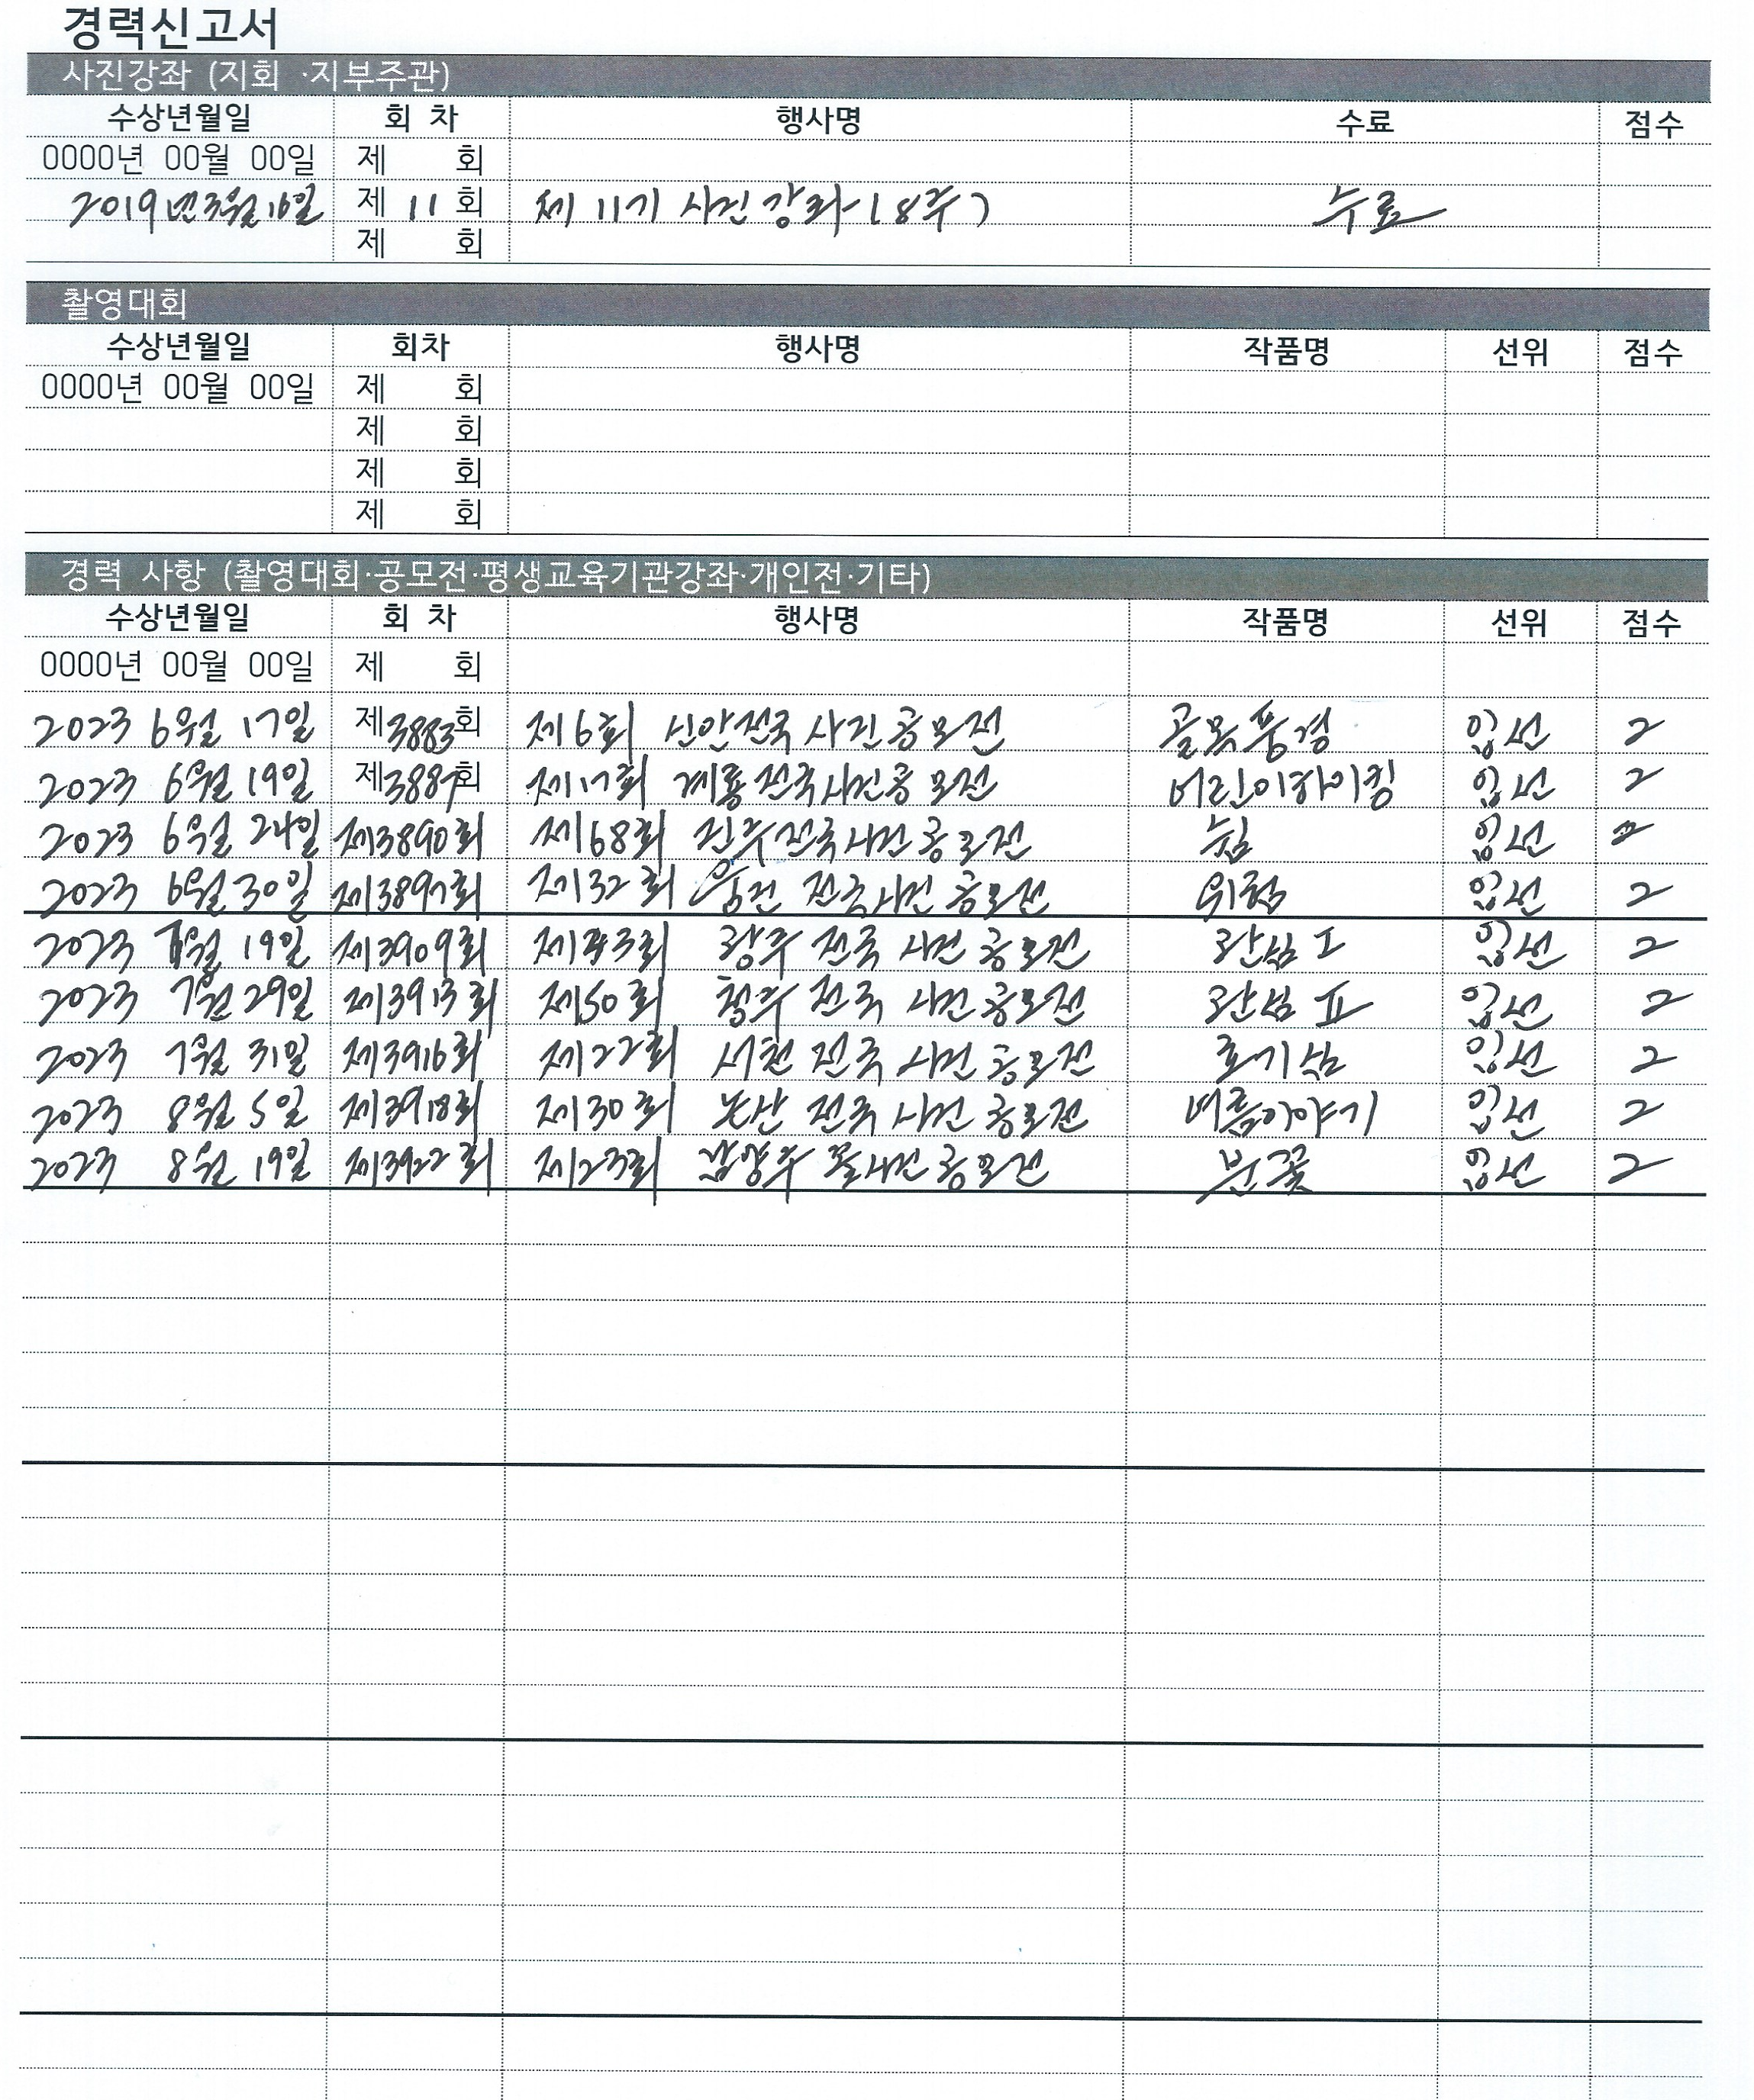 경력신고서
사진강좌 (지회 ·지부주관)
수상년월일 회 차 행사명 수료 점수
0000년 00월 00일 제 회
2019년 3월 16일 제 11 회 제 11기 사진강좌 (8주) 수료
제 회
촬영대회
수상년월일 회차 행사명 작품명 선위 점수
0000년 00월 00일 제 회
제 회
제 회
제 회
경력 사항 (촬영대회·공모전·평생교육기관강좌·개인전·기타)
수상년월일 회 차 행사명 작품명 선위 점수
0000년 00월 00일 제 회
2023 6월 17일 제3883회 제6회 신안전국 사진공모전 골목풍경 입선 2
2023 6월 19일 제3887회 제17회 계룡전국사진공모전 어린이하이킹 입선 2
2023 6월 24일 제3890회 제68회 진주전국사진공모전 입선 2
2023 6월 30일 제3897회 제132회 전국사진공모전 위험 입선 2
2023 7월 19일 제3909회 제43회 광주 전국 사진공모전 입선 2
2023 7월 29일 제3913회 제50회 청주 전국 사진공모전 입선 2
2023 7월 31일 제3916회 제22회 서천 전국 사진공모전 호기심 입선 2
2023 8월 5일 제3918회 제30회 논산 전국 사진공모전 입선 2
2023 8월 19일 제3922회 제23회 남양주 물사진공모전 입선 2